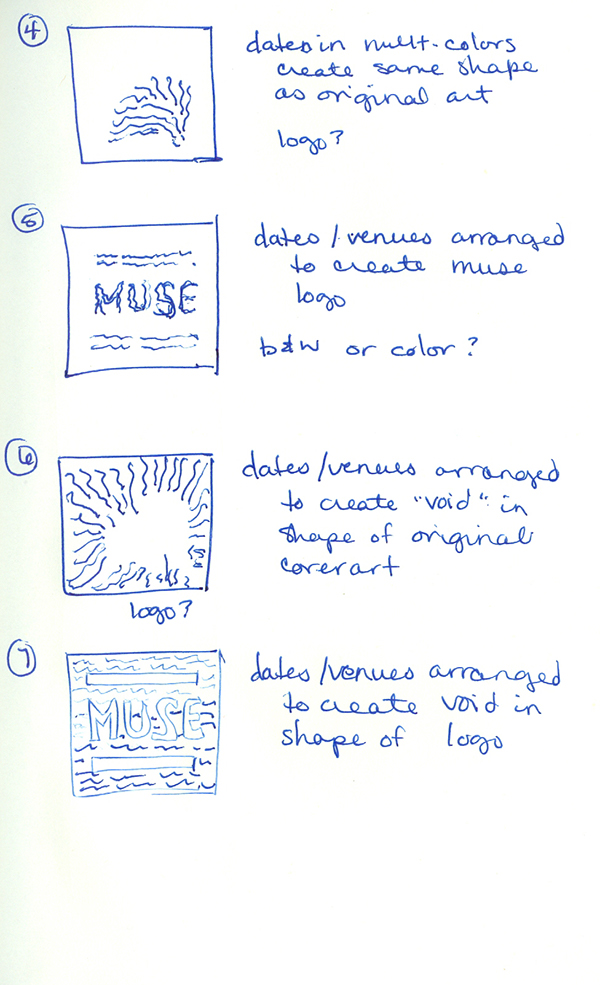 4
dates in mult-colors
create same shape
as original art
logo?
5
dates/venues arranged
to create muse
logo
MUSE
b&w or color?
6
dates/venues arranged
to create "void" in
shape of original
coverart
logo?
7
dates/venues arranged
to create void in
shape of logo
MUSE